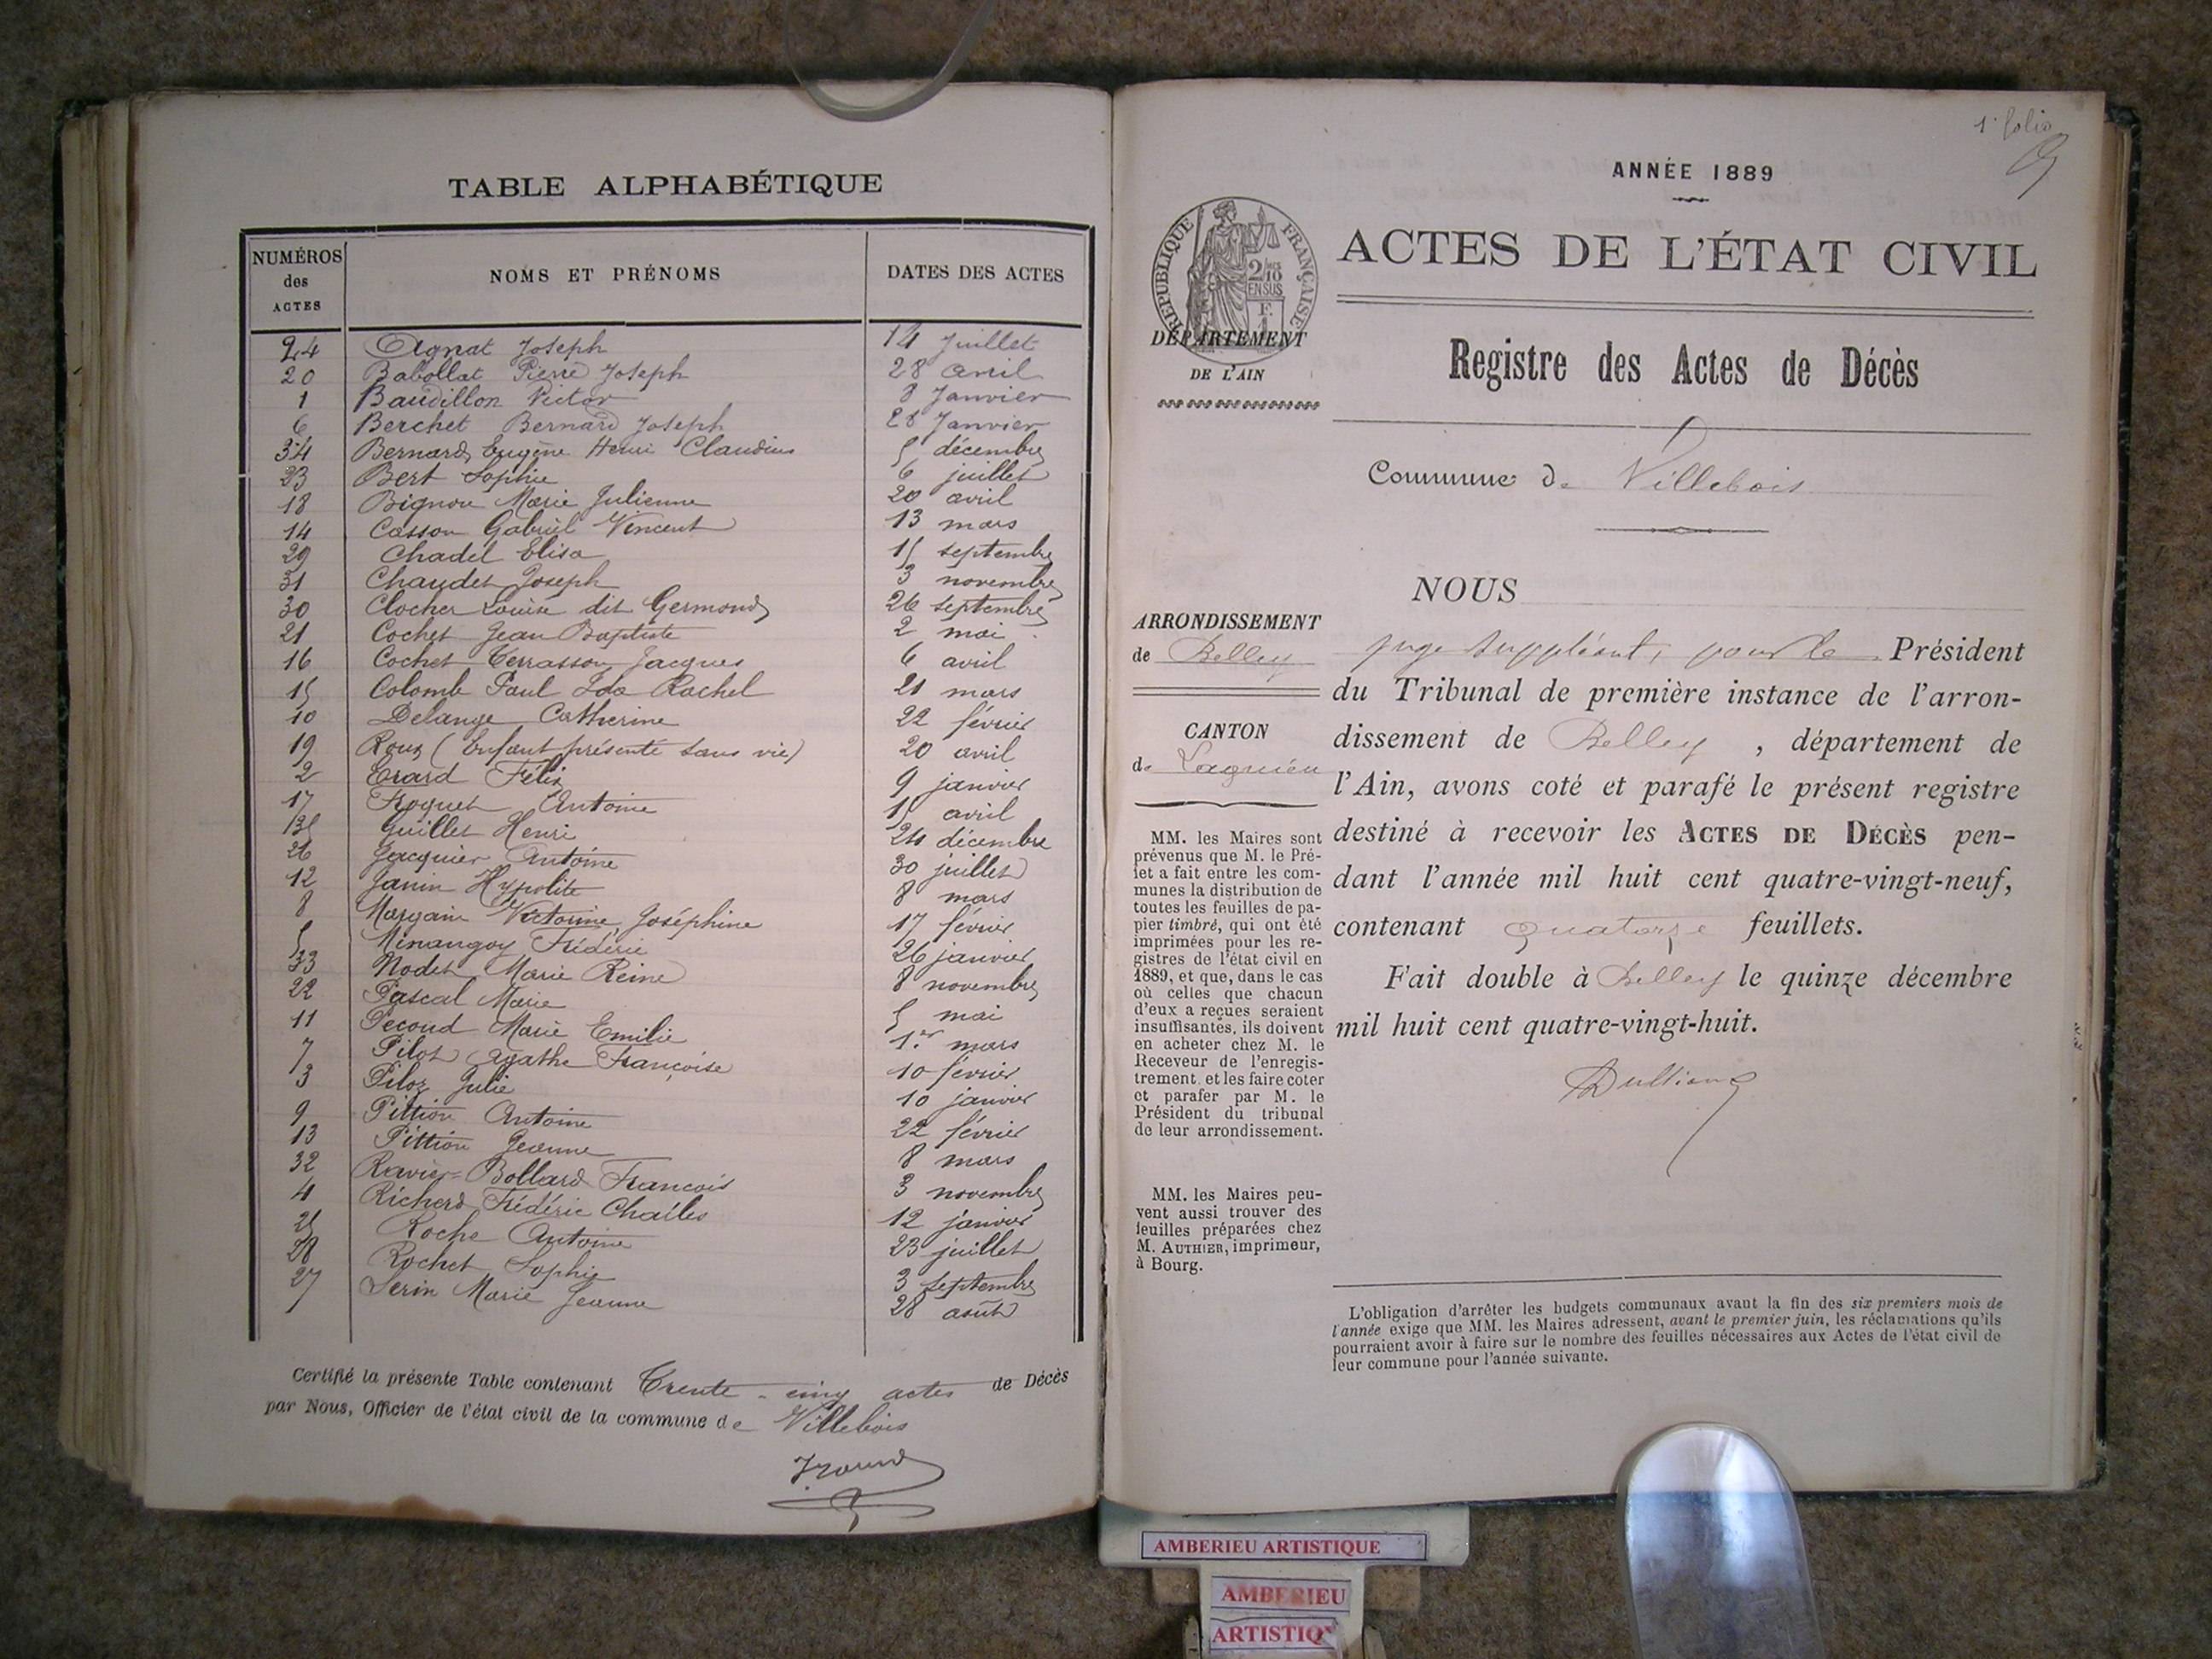 TABLE ALPHABÉTIQUE
NUMÉROS des ACTES NOMS ET PRÉNOMS DATES DES ACTES
24 Agnat Joseph 14 Juillet
20 Babollat Pierre Joseph 28 avril
1 Baudillon Victor 8 Janvier
6 Berchet Bernard Joseph 28 Janvier
34 Bernard Eugène Henri Claudius 5 décembre
23 Bert Sophie 6 juillet
18 Bignon Marie Julienne 20 avril
14 Casson Gabriel Vincent 13 mars
29 Chadel Elisa 15 septembre
31 Chaudet Joseph 3 novembre
30 Clocher Louise dit Germond 26 septembre
21 Cochet Jean Baptiste 2 mai
16 Cochet Terrasson Jacques 6 avril
15 Colomb Paul Ida Rachel 21 mars
10 Delange Catherine 22 février
19 Roux (Enfant présenté sans vie) 20 avril
2 Erard Félix 9 janvier
17 Froquet Antoine 15 avril
35 Guillet Henri 24 décembre
26 Jacquier Antoine 30 juillet
12 Janin Hypolite 8 mars
8 Margain Victorine Joséphine 17 février
5 Minangoy Frédéric 26 janvier
33 Nodet Marie Reine 8 novembre
22 Pascal Marie 5 mai
11 Pecoud Marie Emilie 1er mars
7 Pilot Agathe Françoise 10 février
3 Piloz Julie 10 janvier
9 Pittion Antoine 22 février
13 Pittion Jeanne 8 mars
32 Ravier-Bollard Francois 3 novembre
4 Richerd Frédéric Charles 12 janvier
25 Roche Antoine 23 juillet
28 Rochet Sophie 3 septembre
27 Serin Marie Jeanne 28 août
Certifié la présente Table contenant Trente-cinq actes de Décès
par Nous, Officier de l'état civil de la commune de Villebois
1er folio
ANNÉE 1889
RÉPUBLIQUE FRANÇAISE
2/10 EN SUS
ACTES DE L'ÉTAT CIVIL
DÉPARTEMENT
DE L'AIN
Registre des Actes de Décès
Commune de Villebois
NOUS
ARRONDISSEMENT
de Belley
juge suppléant, pour le Président
du Tribunal de première instance de l'arron-
dissement de Belley, département de
l'Ain, avons coté et parafé le présent registre
destiné à recevoir les ACTES DE DÉCÈS pen-
dant l'année mil huit cent quatre-vingt-neuf,
contenant quatorze feuillets.
Fait double à Belley le quinze décembre
mil huit cent quatre-vingt-huit.
CANTON
de Lagnieu
MM. les Maires sont
prévenus que M. le Pré-
fet a fait entre les com-
munes la distribution de
toutes les feuilles de pa-
pier timbré, qui ont été
imprimées pour les re-
gistres de l'état civil en
1889, et que, dans le cas
où celles que chacun
d'eux a reçues seraient
insuffisantes, ils doivent
en acheter chez M. le
Receveur de l'enregis-
trement et les faire coter
et parafer par M. le
Président du tribunal
de leur arrondissement.
MM. les Maires peu-
vent aussi trouver des
feuilles préparées chez
M. AUTHIER, imprimeur,
à Bourg.
L'obligation d'arrêter les budgets communaux avant la fin des six premiers mois de
l'année exige que MM. les Maires adressent, avant le premier juin, les réclamations qu'ils
pourraient avoir à faire sur le nombre des feuilles nécessaires aux Actes de l'état civil de
leur commune pour l'année suivante.
AMBERIEU ARTISTIQUE
AMBERIEU
ARTISTIQ